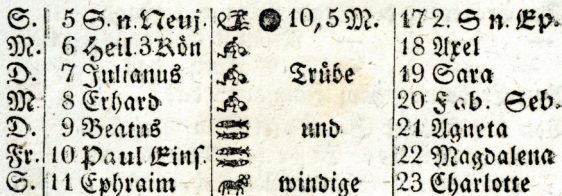 S. 5 S. n. Neuj. ● 10,5 M. 17 2. S n. Ep.
M. 6 Heil. 3 Kön 18 Axel
D. 7 Julianus Trübe 19 Sara
M. 8 Erhard 20 Fab. Seb.
D. 9 Beatus und 21 Agneta
Fr. 10 Paul. Eins. 22 Magdalena
S. 11 Ephraim windige 23 Charlotte